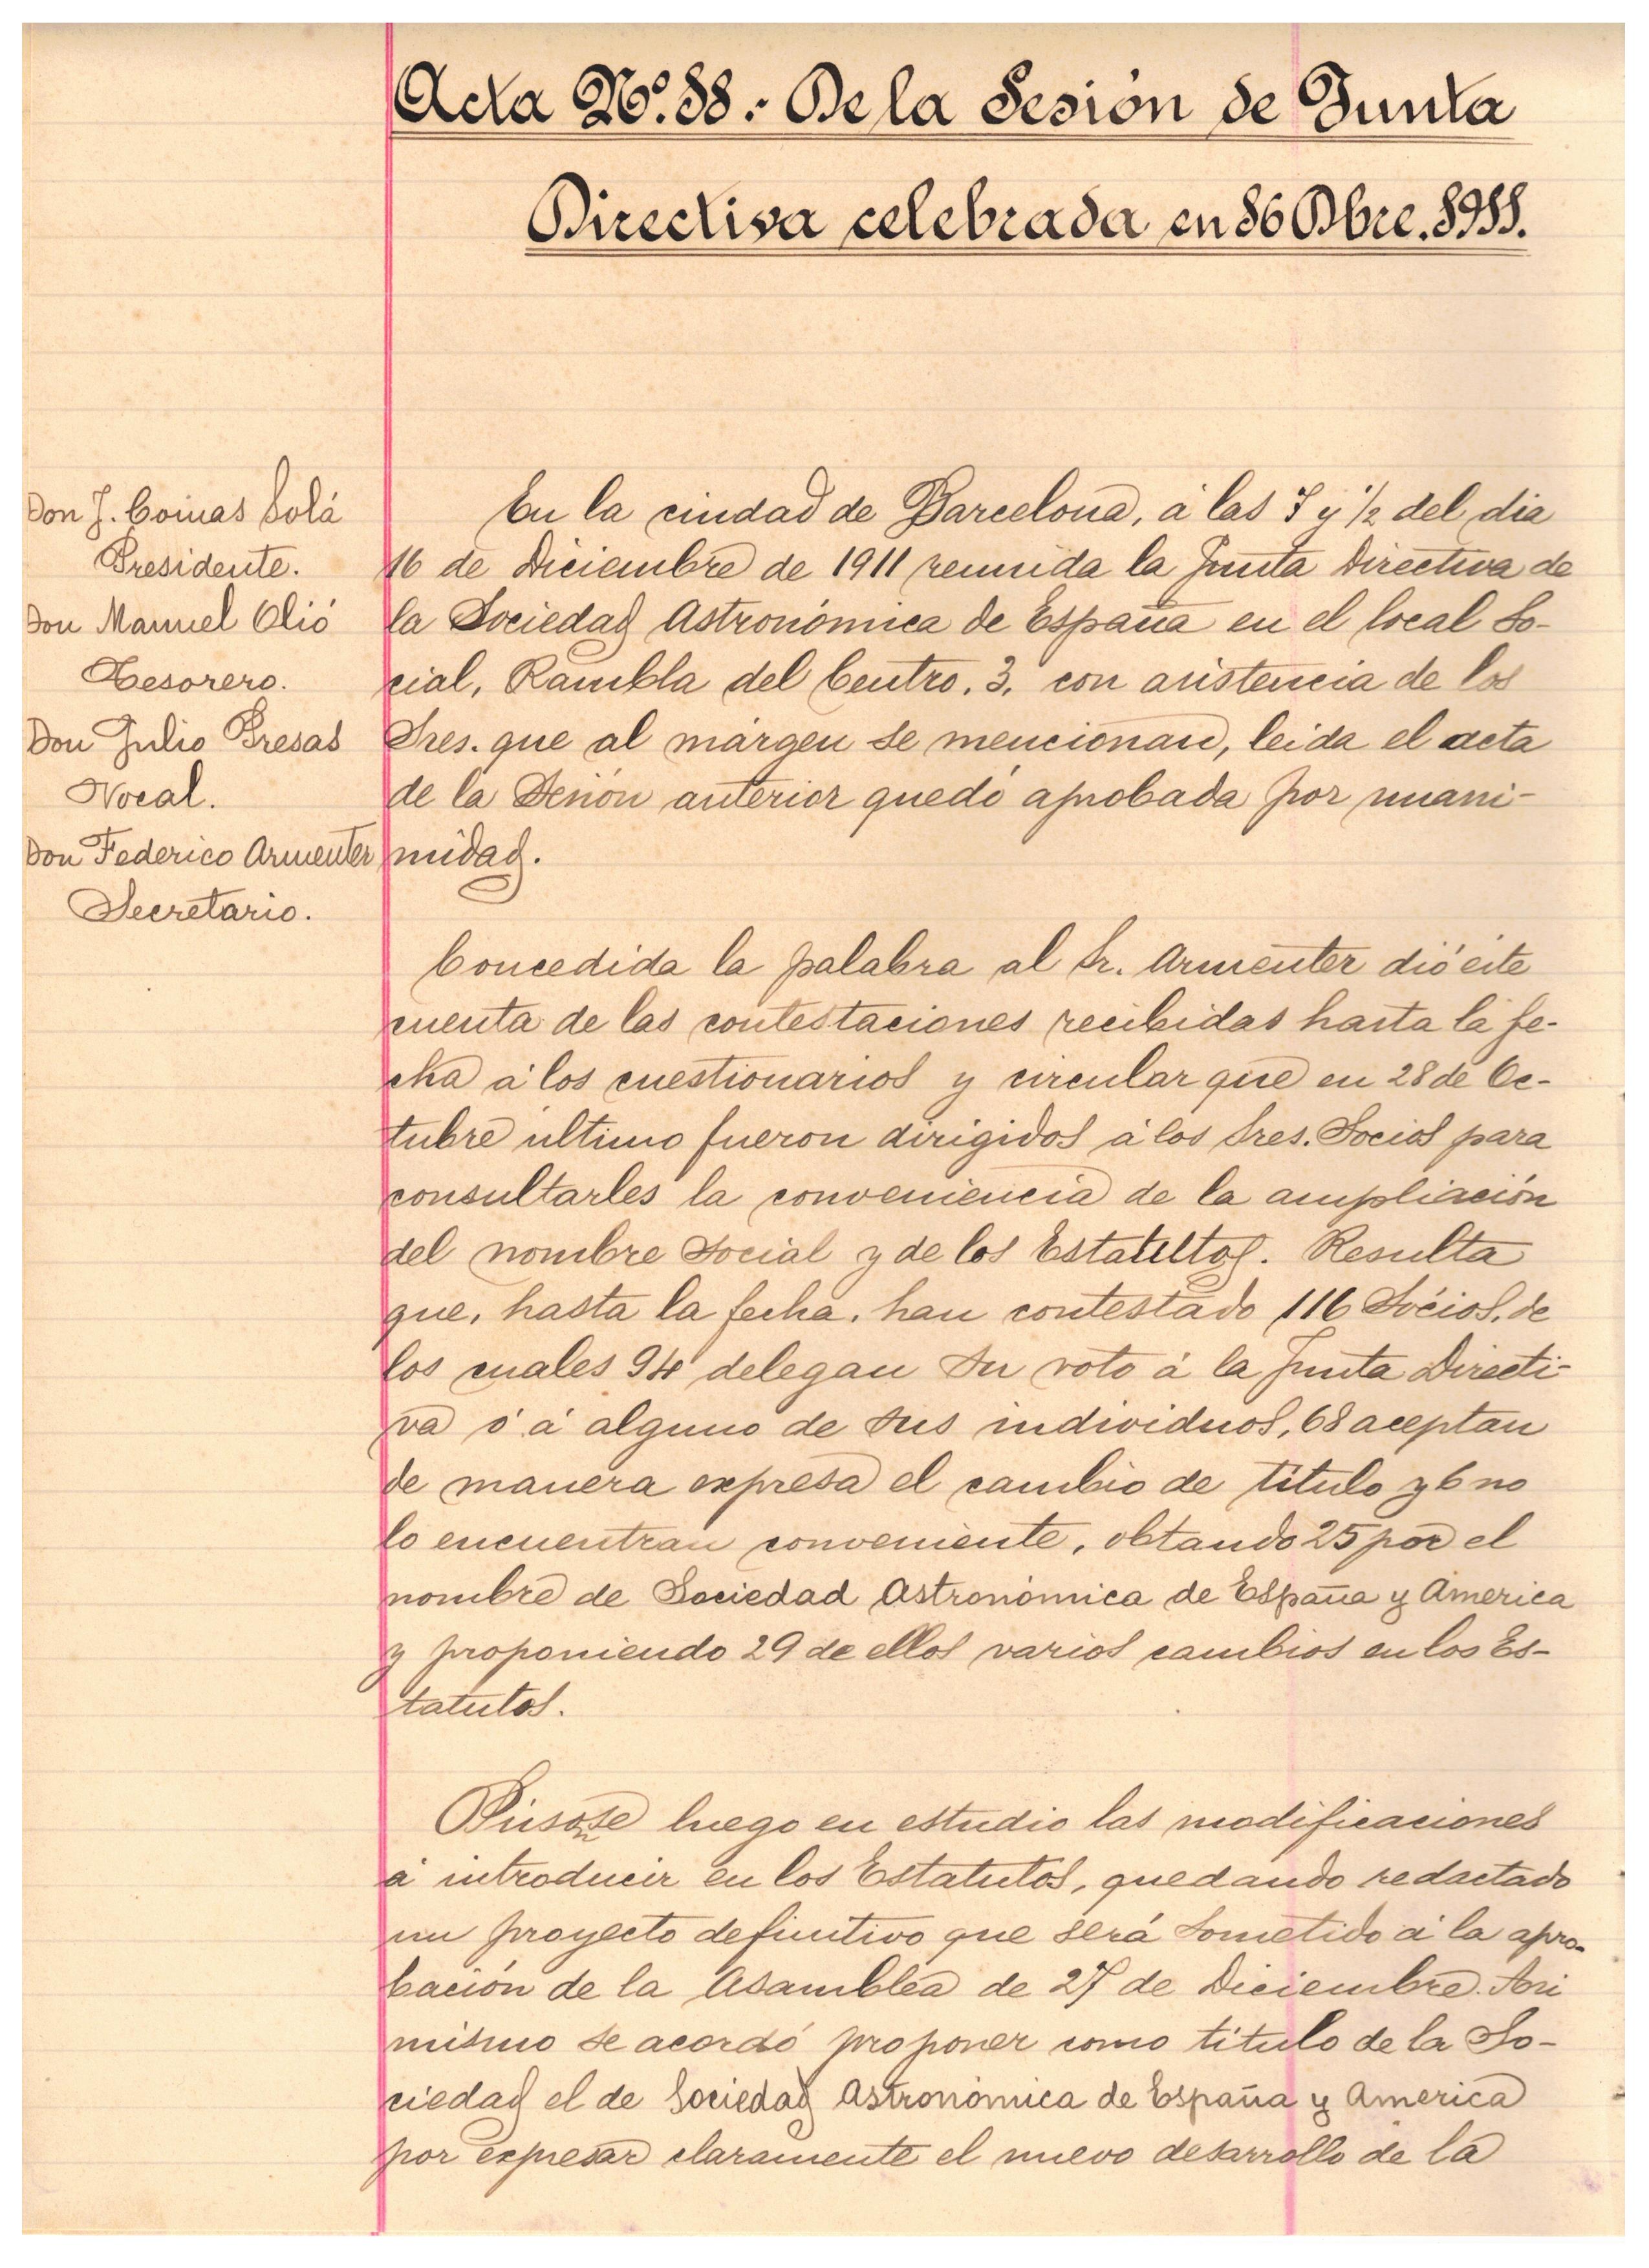 Acta Nº. 11.- De la Sesión de Junta
Directiva celebrada en 16 Dbre. 1911.
Don J. Comas Solá
Presidente.
Don Manuel Olió
Tesorero.
Don Julio Presas
Vocal.
Don Federico Armenter
Secretario.
En la ciudad de Barcelona, á las 7 y 1/2 del dia
16 de Diciembre de 1911 reunida la Junta Directiva de
la Sociedad Astronómica de España en el local So-
cial, Rambla del Centro, 3, con asistencia de los
Sres. que al márgen se mencionan, leida el acta
de la Sesión anterior quedó aprobada por unani-
midad.
Concedida la palabra al Sr. Armenter dió éste
cuenta de las contestaciones recibidas hasta la fe-
cha á los cuestionarios y circular que en 28 de Oc-
tubre último fueron dirigidos á los Sres. Socios para
consultarles la conveniencia de la ampliación
del nombre Social y de los Estatutos. Resulta
que, hasta la fecha, han contestado 116 Sócios, de
los cuales 94 delegan su voto á la Junta Directi-
va ó á alguno de sus individuos, 68 aceptan
de manera expresa el cambio de título y 6 no
lo encuentran conveniente, obtando 25 por el
nombre de Sociedad Astronómica de España y America
y proponiendo 29 de ellos varios cambios en los Es-
tatutos.
Púsose luego en estudio las modificaciones
á introducir en los Estatutos, quedando redactado
un proyecto definitivo que será sometido á la apro-
bación de la Asamblea de 27 de Diciembre. Asi
mismo se acordó proponer como título de la So-
ciedad el de Sociedad Astronómica de España y America
por expresar claramente el nuevo desarrollo de la